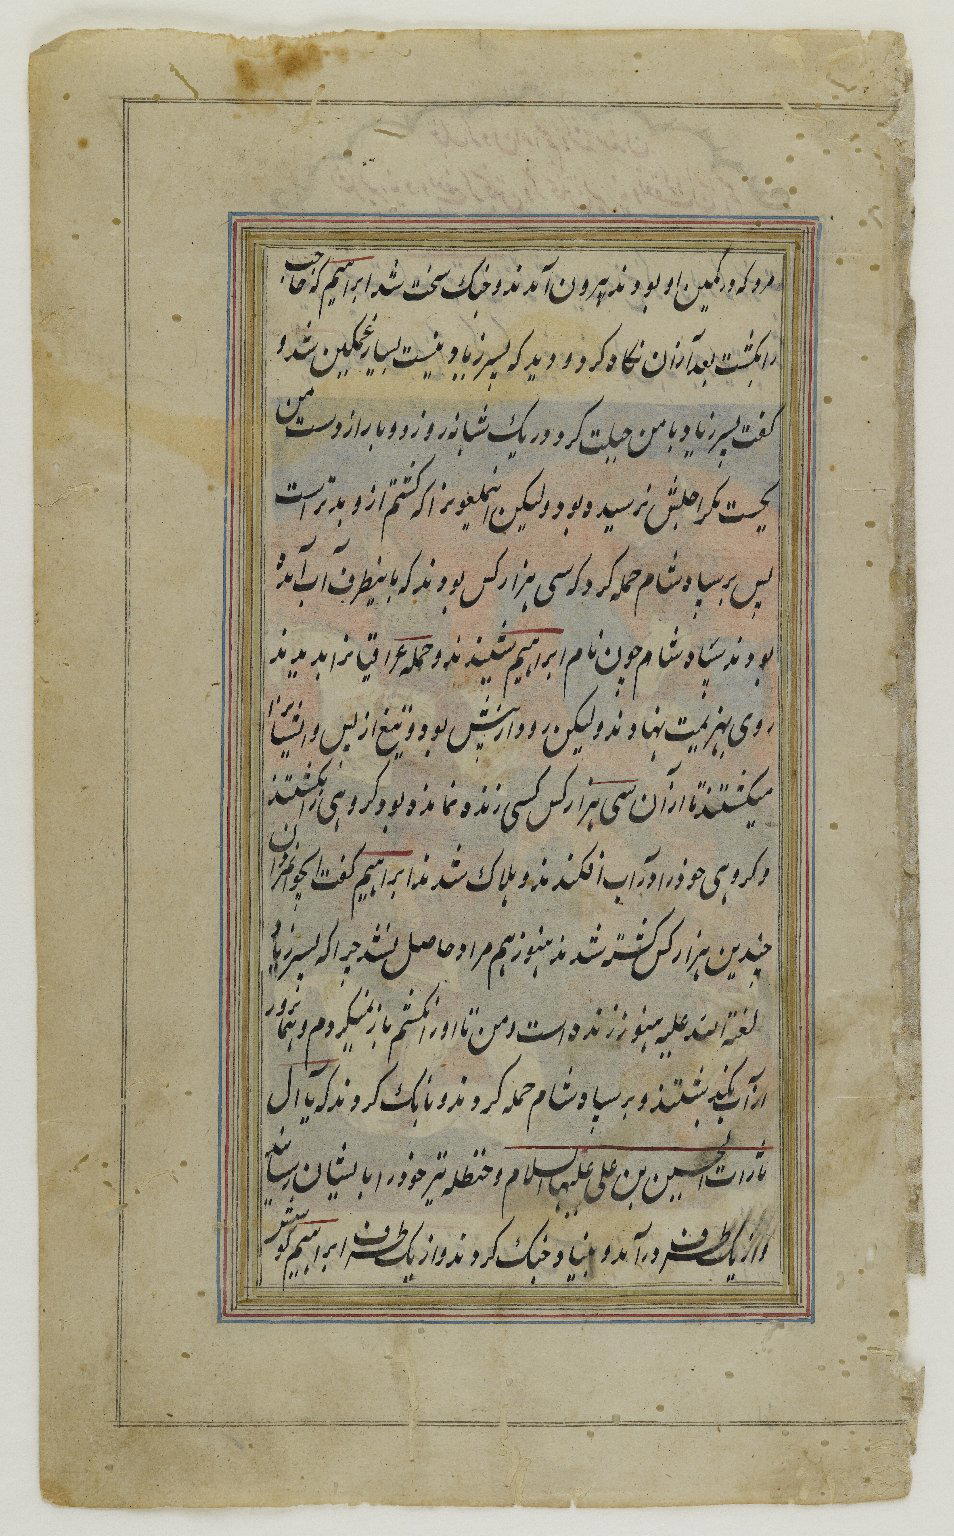 مرو که در کمین او بودند بیرون آمدند و جنک سخت شد ابراهیم که حاجب
را بکشت بعد از آن نکاه کرد و دید که پسر زیاد نیست بسیار غمکین شد و
کفت پسر زیاد با من حیلت کرد در یک شبانه روز دو بار از دست من
بجست مکر اجلش نرسیده بود ولیکن را که کشتم از و بدتر است
پس بر سپاه شام حمله کرد که سی هزار کس بودند که باینطرف آب آمده
بودند سپاه شام چون نام ابراهیم شنیدند و حمله عراقیانرا بدیدند
روی بهزیمت نهادند ولیکن رود از پیش بود و تیغ از پس و ایشانرا
میکشتند تا از آن سی هزار کس کسی زنده نمانده بود کروهی را بکشتند
و کروهی خود را در آب افکندند و هلاک شدند ابراهیم کفت ایجوانمردان
چندین هزار کس کشته شدند هنوز هم مراد حاصل نشد چرا که پسر زیاد
لعنة الله علیه هنوز زنده است و من تا او را نکشم باز نمیکردم و همانروز
از آب بکذشتند و بر سپاه شام حمله کردند و بانک کردند که یا آل
ثارات الحسین بن علی علیهما السلام و حنظله نیز خود را بایشان رسانید
و از یک طرف در آمد و بنیاد جنک کردند و از یک طرف ابراهیم کوشش